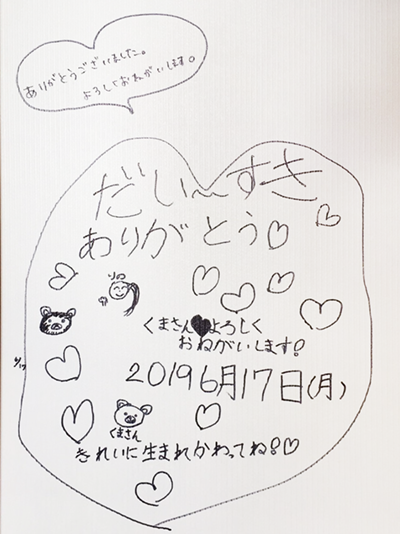 ありがとうございました。
よろしくおねがいします。
だい〜すき
ありがとう♡
くまさん♥よろしく
おねがいします!
2019 6月17日(月)
くまさん
きれいに生まれかわってね!♡